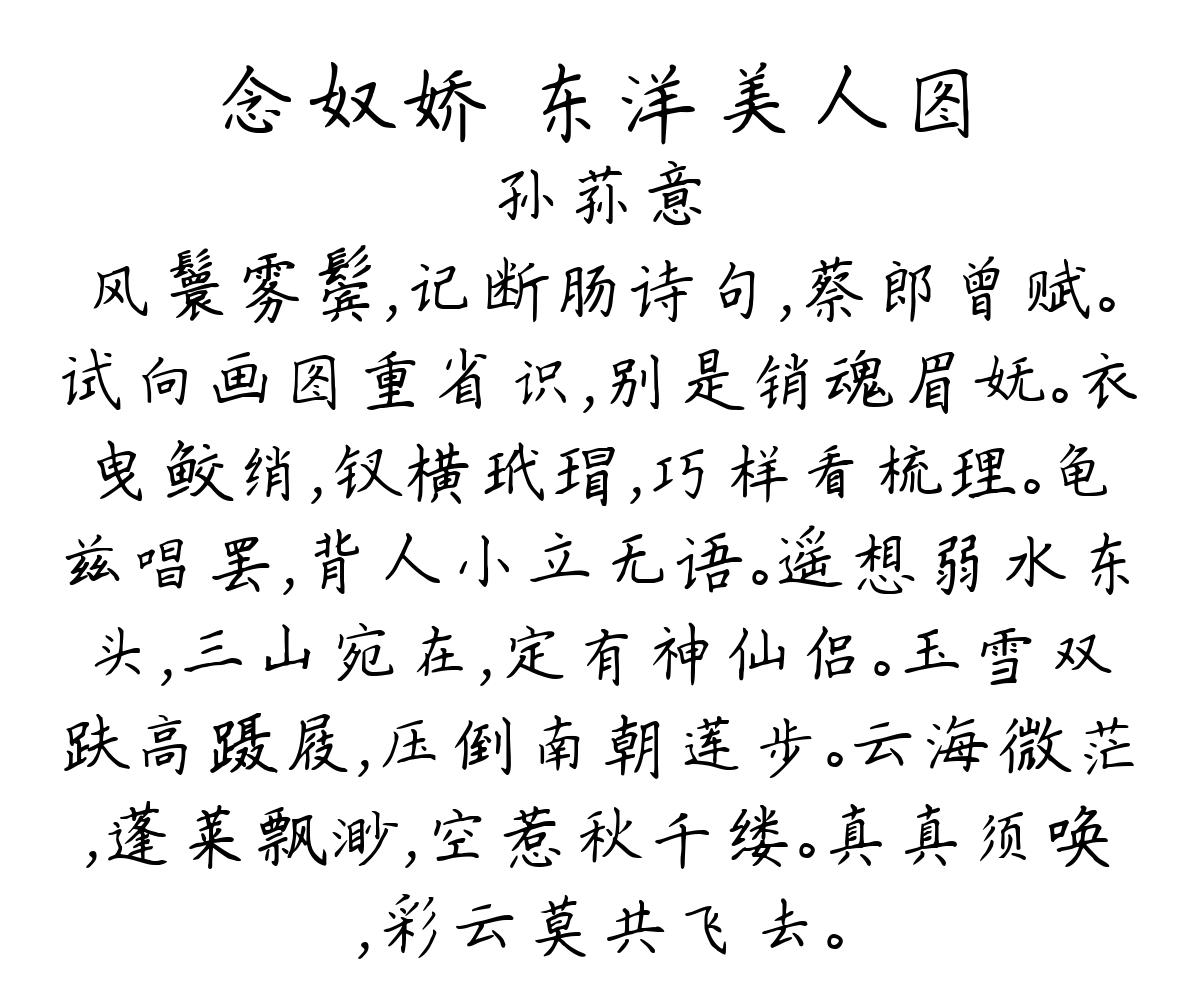 念奴娇 东洋美人图
孙荪意
风鬟雾鬓,记断肠诗句,蔡郎曾赋。
试向画图重省识,别是销魂眉妩。衣
曳鲛绡,钗横玳瑁,巧样看梳理。龟
兹唱罢,背人小立无语。遥想弱水东
头,三山宛在,定有神仙侣。玉雪双
趺高蹑屐,压倒南朝莲步。云海微茫
,蓬莱飘渺,空惹秋千缕。真真须唤
,彩云莫共飞去。